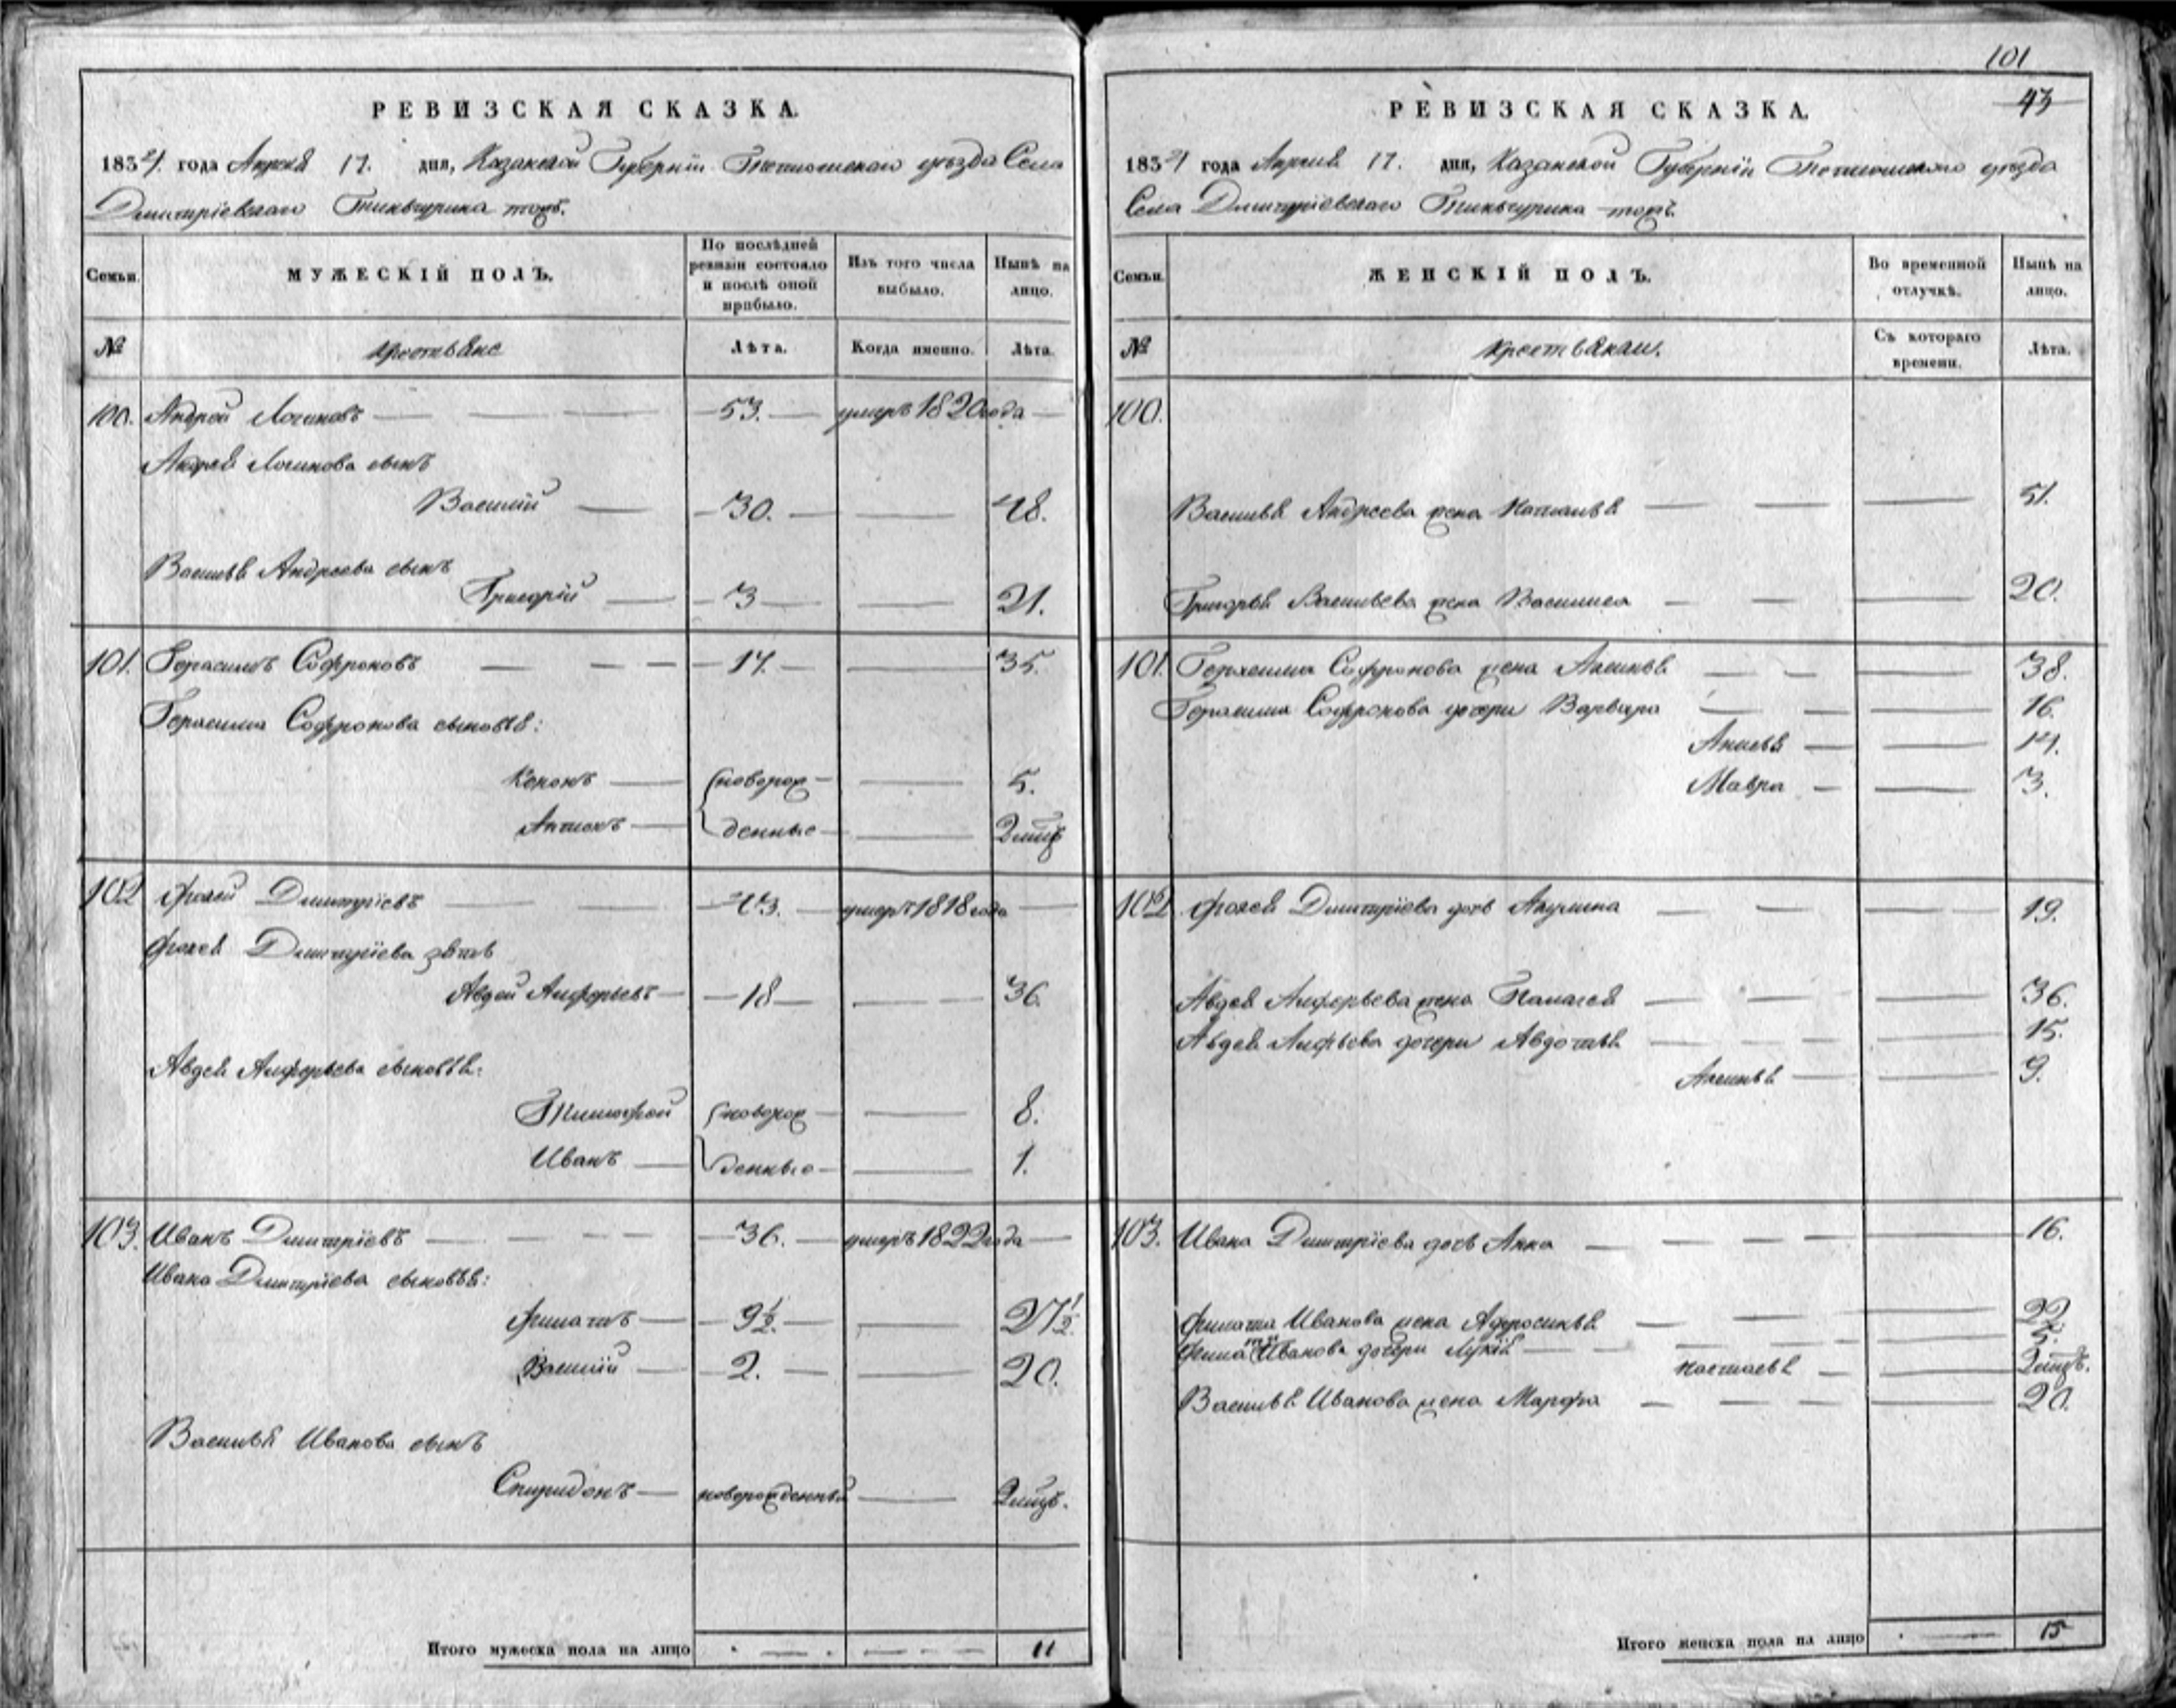 РЕВИЗСКАЯ СКАЗКА.
1834 года Апреля 17. дня, Казанской Губернїи Тетюшскаго уѣзда Села
Дмитрїевскаго
Семьи.
МУЖЕСКІЙ ПОЛЪ.
По послѣдней ревизіи состояло и послѣ оной прибыло.
Изъ того числа выбыло.
Нынѣ на лицо.
№
крестьяне
Лѣта.
Когда именно.
Лѣта.
100. Андрей Логиновъ 53. умеръ 1820 года
Андрея Логинова сынъ
Василїй 30. 48.
Василья Андреева сынъ
Григорїй 3 21.
101. Герасимъ Софроновъ 17. 35.
Герасима Софронова сыновья:
Кононъ новорож 5.
денные
102 Фролъ Дмитрїевъ 43. умеръ 1818 года
Дмитрїева зять
Авдей Алферьевъ 18 36.
Авдея Алферьева сыновья:
Тимофей новорож 8.
Иванъ денные 1.
103. Иванъ Дмитрїевъ 36. умеръ 1822 года
Ивана Дмитрїева сыновья:
Филатъ 9½ 27½
Василїй 2. 20.
Василья Иванова сынъ
Спиридонъ новорожденный
Итого мужеска пола на лицо 11
101
43
РЕВИЗСКАЯ СКАЗКА.
1834 года Апреля 17. дня, Казанской Губернїи Тетюшскаго уѣзда
Села Дмитрїевскаго
Семьи.
ЖЕНСКІЙ ПОЛЪ.
Во временной отлучкѣ.
Нынѣ на лицо.
№
крестьянки.
Съ котораго времени.
Лѣта.
100.
Василья Андреева жена Наталья 51.
Григорья Васильева жена Василиса 20.
101. Герасима Софронова жена Аксинья 38.
Герасима Софронова дочери Варвара 16.
14.
Мавра 3.
102 Дмитрїева дочь Акулина 19.
Авдея Алферьева жена Палагея 36.
Авдея дочери Авдотья 15.
Аксинья 9.
103. Ивана Дмитрїева дочь Анна 16.
Филата Иванова жена Афросинья 22.
Филата Иванова дочери 5.
Настасья
Василья Иванова жена Марфа 20.
Итого женска пола на лицо 15